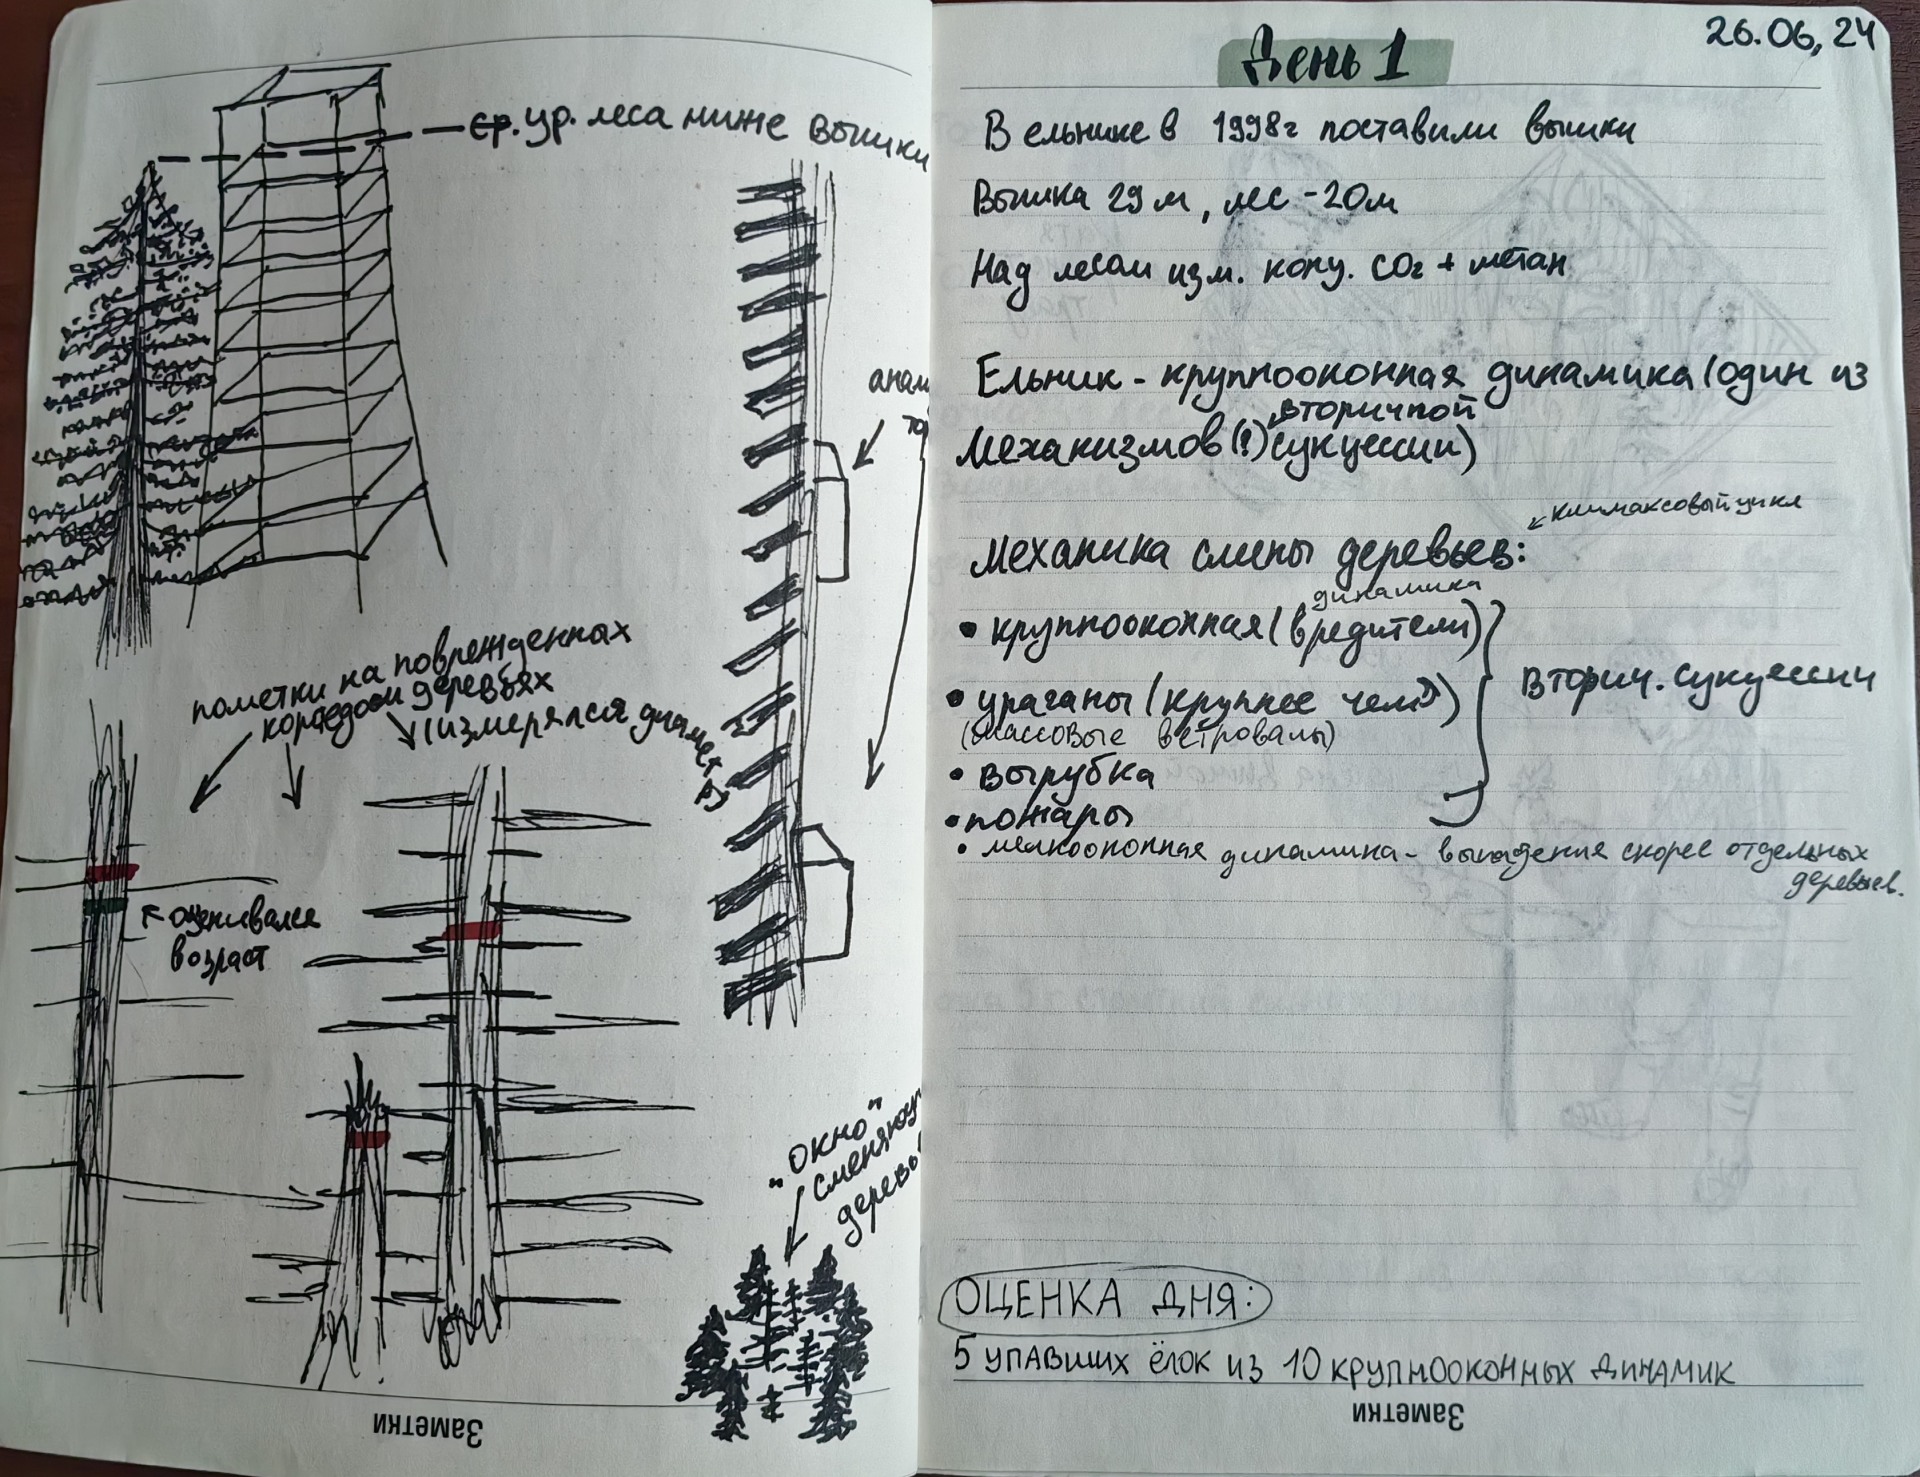 ср. ур. леса ниже вышки
анали
то
пометки на поврежденных
короедом деревьях
(измерялся диаметр)
оценивался
возраст
"окно"
сменяющ
деревь
Заметки
26.06.24
День 1
В ельнике в 1998г поставили вышки
Вышка 29 м, лес - 20м
Над лесом изм. конц. CO2 + метан
Ельник - крупнооконная динамика (один из
вторичной
механизмов (?) сукцессии)
климаксовый цикл
Механика смены деревьев:
динамика
• крупнооконная (вредители)
• ураганы (крупнее чем
(массовые ветровалы)
• вырубка
• пожары
вторич. сукцессии
• мелкооконная динамика - выпадения скорее отдельных
деревьев.
ОЦЕНКА ДНЯ:
5 УПАВШИХ ЁЛОК ИЗ 10 КРУПНООКОННЫХ ДИНАМИК
Заметки